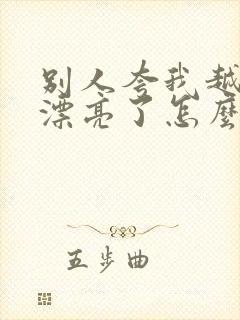 别人夸我越
漂亮了怎麽
五步曲